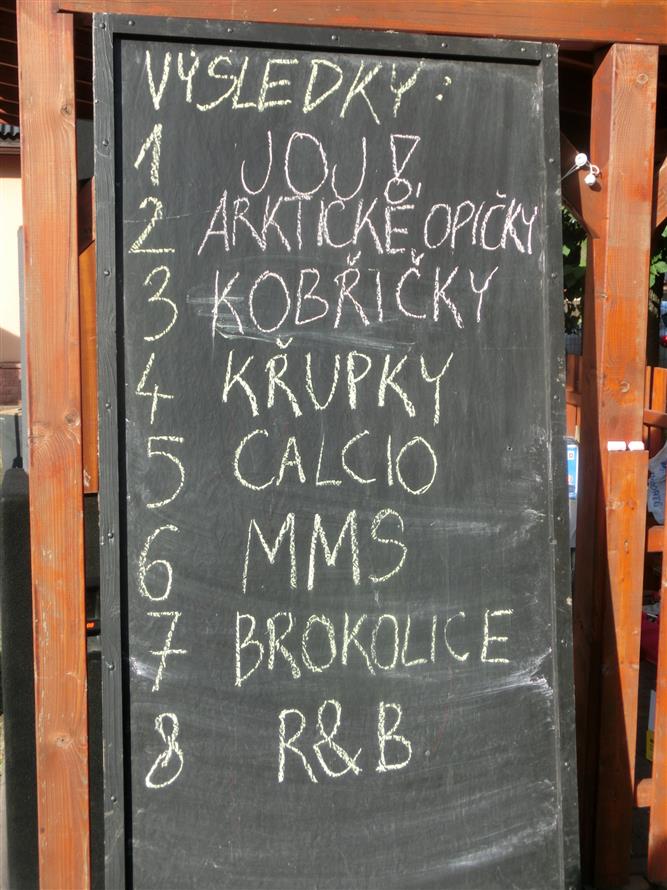 VÝSLEDKY:
1 JOJ!
2 ARKTICKÉ OPIČKY
3 KOBŘIČKY
4 KŘUPKY
5 CALCIO
6 MMS
7 BROKOLICE
8 R&B